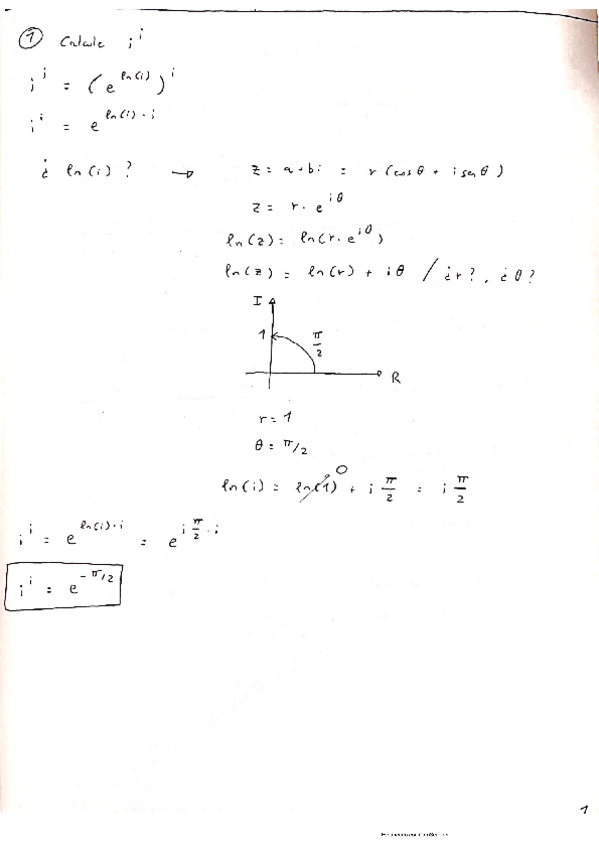 ① Calcule i^i
i^i = (e^ln(i))^i
i^i = e^ln(i)·i
¿ ln(i) ? → z = a+bi = r (cosθ + i senθ)
z = r · e^iθ
ln(z) = ln(r · e^iθ)
ln(z) = ln(r) + iθ / ¿r?, ¿θ?
I
1 π/2
R
r = 1
θ = π/2
ln(i) = ln(1) 0 + i π/2 = i π/2
i^i = e^ln(i)·i = e^i π/2 · i
i^i = e^-π/2
1